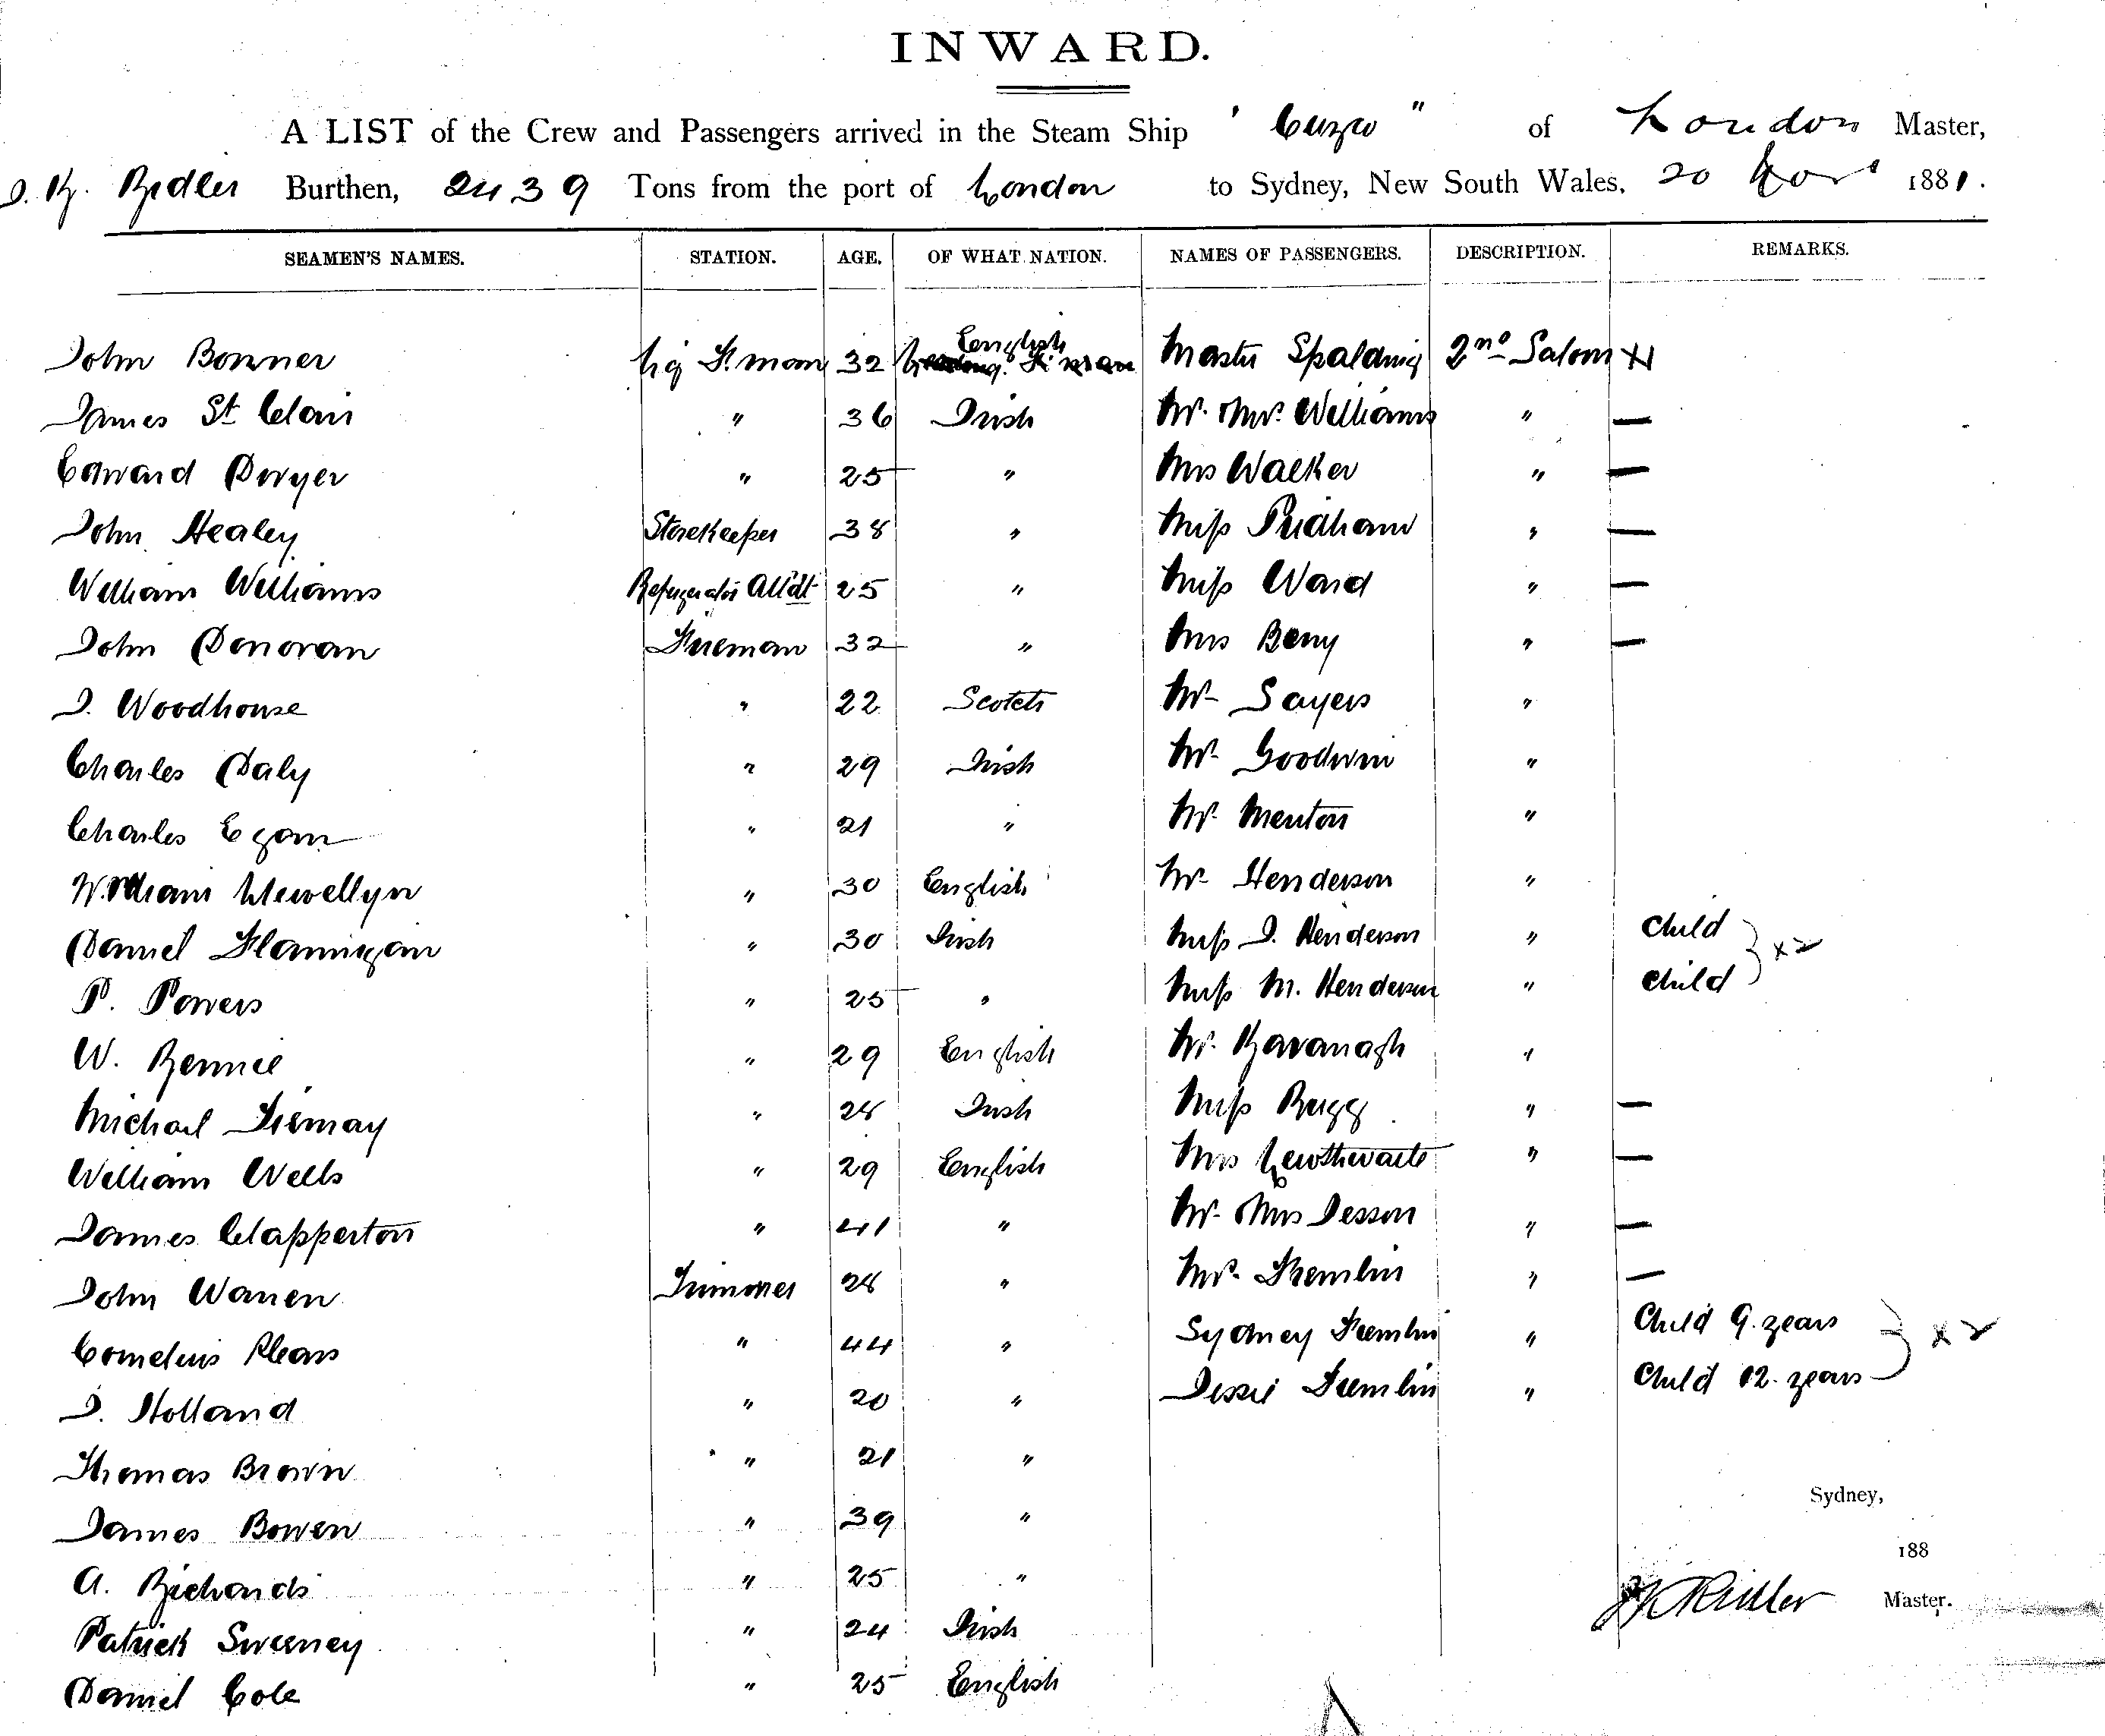 INWARD.
A LIST of the Crew and Passengers arrived in the Steam Ship "Cuzco" of London Master,
J. K. Ridler Burthen, 2439 Tons from the port of London to Sydney, New South Wales, 20 Novr 1881.
SEAMEN'S NAMES. STATION. AGE. OF WHAT NATION. NAMES OF PASSENGERS. DESCRIPTION. REMARKS.
John Bonner Ldg Fi. man 32 English Master Spalding 2nd Saloon
James St Clair " 36 Irish Mr. Mrs. Williams " —
Edward Dwyer " 25 " Mrs Walker " —
John Healey Storekeeper 38 " Miss Pridham " —
William Williams Refrigerator Attdt 25 " Miss Ward " —
John Donovan Fireman 32 " Mrs Berry " —
J. Woodhouse " 22 Scotch Mr Sayers "
Charles Daly " 29 Irish Mr Goodwin "
Charles Egan " 21 " Mr. Menton "
William Llewellyn " 30 English Mr Henderson "
Daniel Flannigan " 30 Irish Miss J. Henderson " Child
P. Powers " 25 " Miss M. Henderson " Child } x 2
W. Rennie " 29 English Mr. Kavanagh "
Michael Tiernay " 28 Irish Miss Rugg " —
William Wells " 29 English Mrs Lewthwaite " —
James Clapperton " 41 " Mr. Mrs Jesson " —
John Warren Trimmer 28 " Mrs. Fremlin " —
Cornelius Pleass " 44 " Sydney Fremlin " Child 9. years
J. Holland " 20 " Jessie Fremlin " Child 12. years } x 2
Thomas Brown " 21 "
James Bowen " 39 "
A. Richards " 25 "
Patrick Sweeney " 24 Irish
Daniel Cole " 25 English
Sydney,
188
J K Ridler Master.